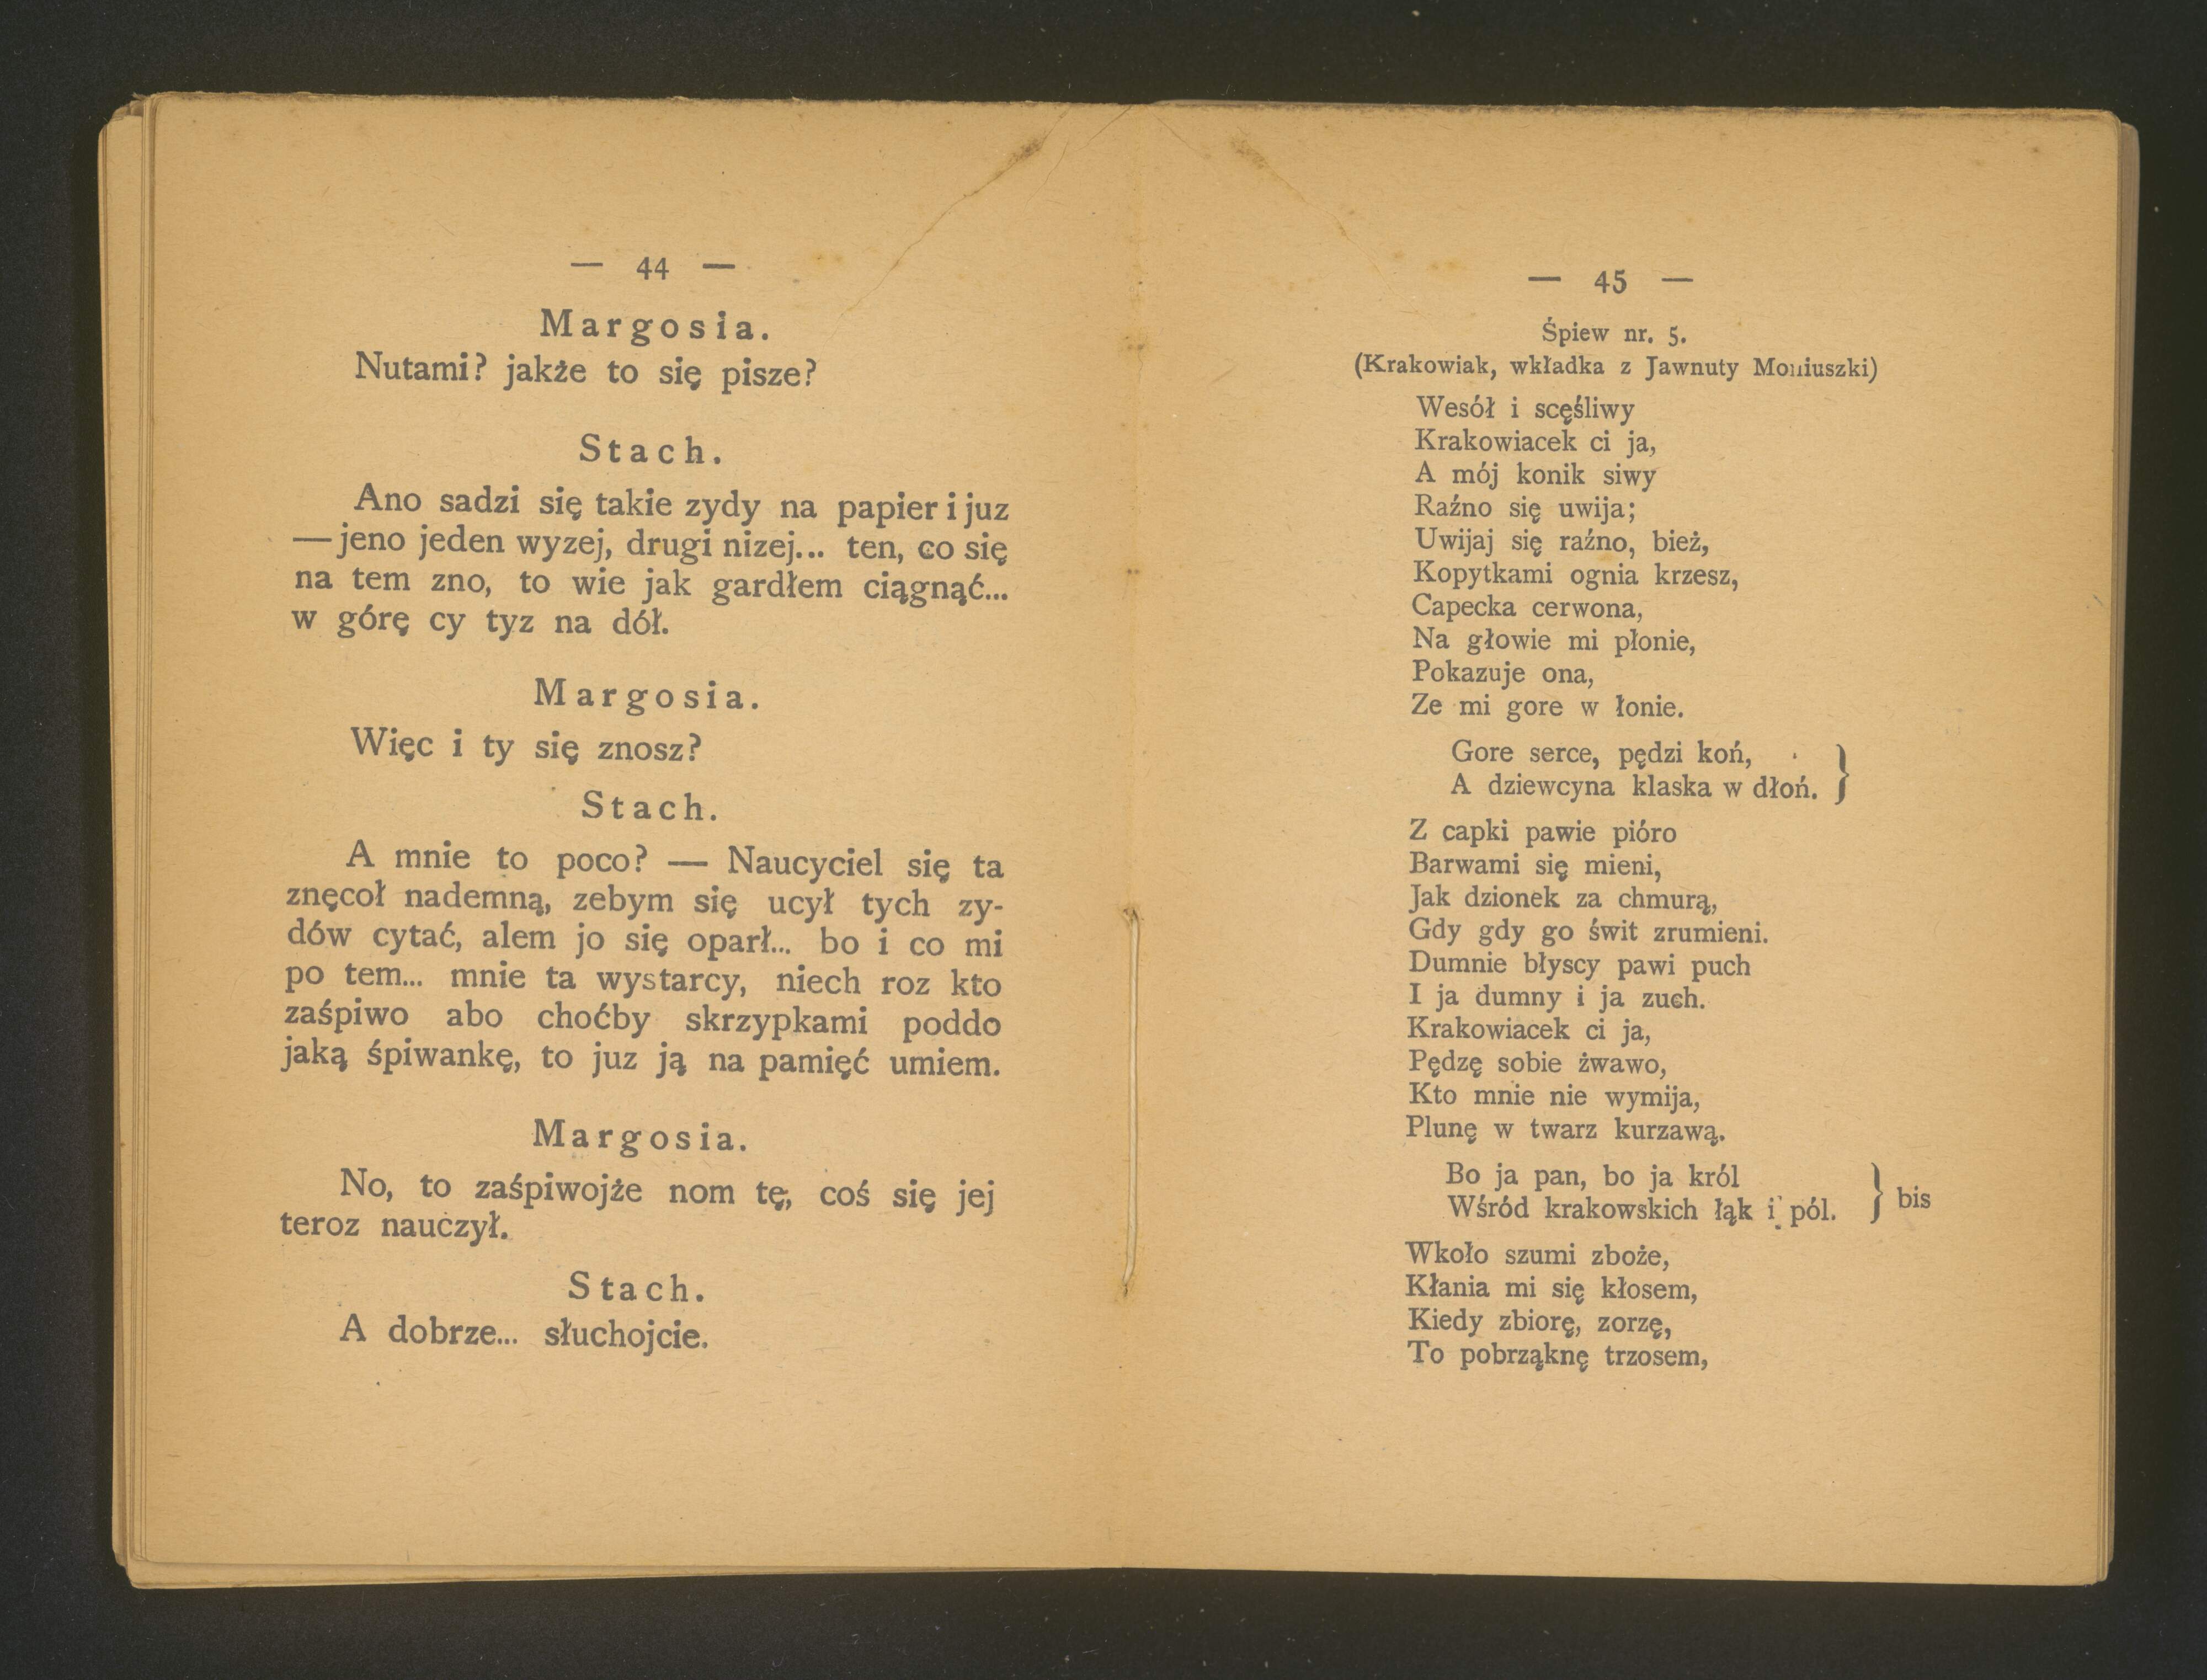 — 44 —
Margosia.
Nutami? jakże to się pisze?
Stach.
Ano sadzi się takie zydy na papier i juz
— jeno jeden wyzej, drugi nizej... ten, co się
na tem zno, to wie jak gardłem ciągnąć...
w górę cy tyz na dół.
Margosia.
Więc i ty się znosz?
Stach.
A mnie to poco? — Naucyciel się ta
znęcoł nademną, zebym się ucył tych zy-
dów cytać, alem jo się oparł... bo i co mi
po tem... mnie ta wystarcy, niech roz kto
zaśpiwo abo choćby skrzypkami poddo
jaką śpiwankę, to juz ją na pamięć umiem.
Margosia.
No, to zaśpiwojże nom tę, coś się jej
teroz nauczył.
Stach.
A dobrze... słuchojcie.
— 45 —
Śpiew nr. 5.
(Krakowiak, wkładka z Jawnuty Moniuszki)
Wesół i scęśliwy
Krakowiacek ci ja,
A mój konik siwy
Raźno się uwija;
Uwijaj się raźno, bież,
Kopytkami ognia krzesz,
Capecka cerwona,
Na głowie mi płonie,
Pokazuje ona,
Ze mi gore w łonie.
Gore serce, pędzi koń,
A dziewcyna klaska w dłoń. }
Z capki pawie pióro
Barwami się mieni,
Jak dzionek za chmurą,
Gdy gdy go świt zrumieni.
Dumnie błyscy pawi puch
I ja dumny i ja zuch.
Krakowiacek ci ja,
Pędzę sobie żwawo,
Kto mnie nie wymija,
Plunę w twarz kurzawą.
Bo ja pan, bo ja król
Wśród krakowskich łąk i pól. } bis
Wkoło szumi zboże,
Kłania mi się kłosem,
Kiedy zbiorę, zorzę,
To pobrząknę trzosem,